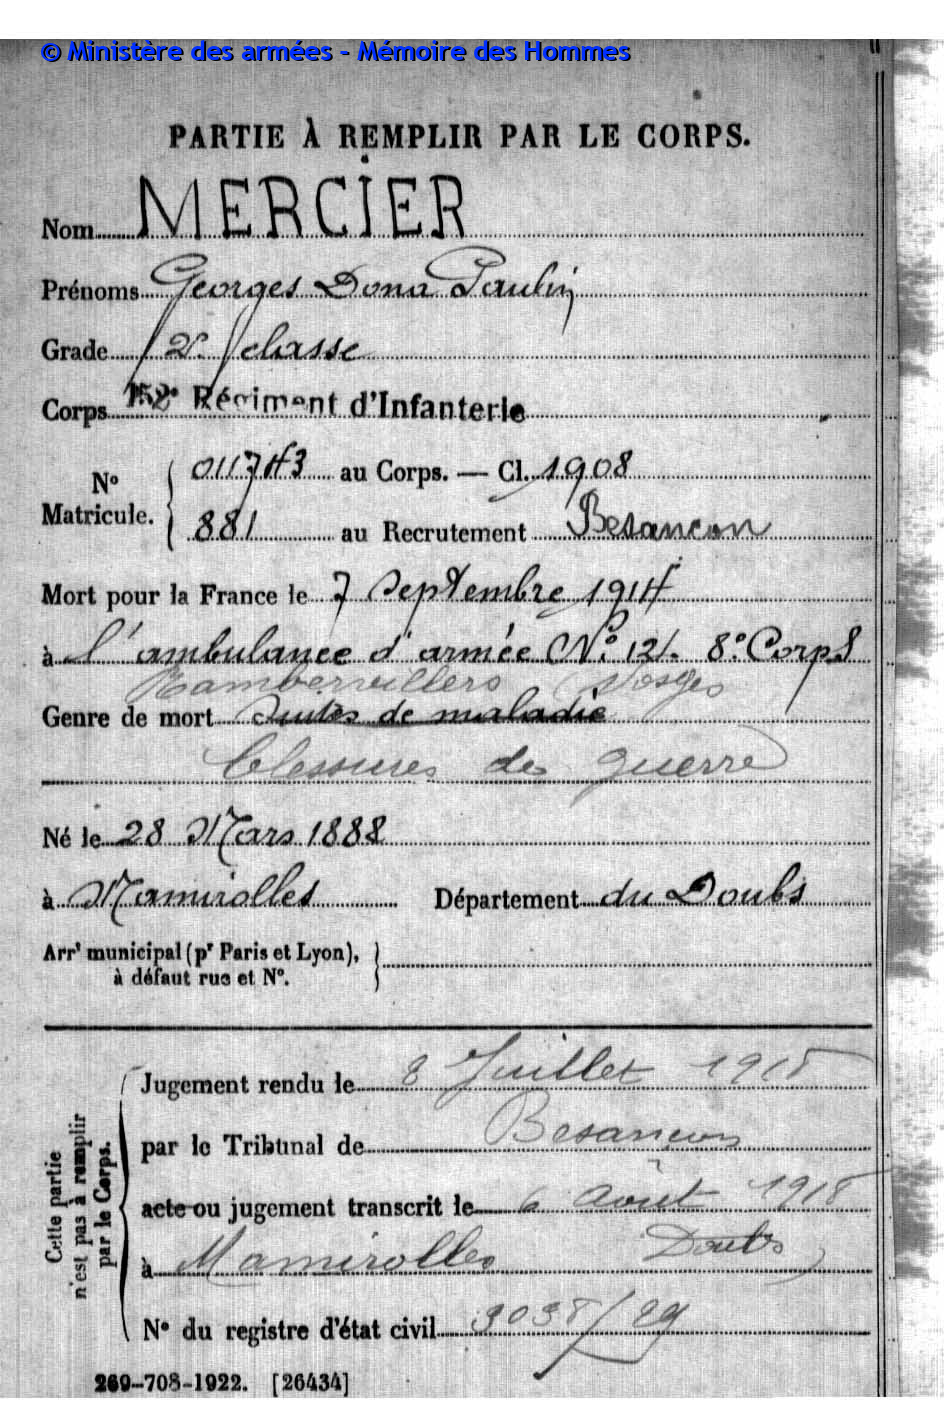 © Ministère des armées - Mémoire des Hommes
PARTIE À REMPLIR PAR LE CORPS.
Nom MERCIER
Prénoms Georges Dona Paulin
Grade 2e classe
Corps 152e Régiment d'Infanterie
No Matricule. { 011743 au Corps. — Cl. 1908
881 au Recrutement Besancon
Mort pour la France le 7 Septembre 1914
à l'ambulance d'armée No. 12/. 8e Corps
Rambervillers (Vosges
Genre de mort suites de maladie
blessures de guerre
Né le 28 Mars 1888
à Mamirolles Département du Doubs
Arrt municipal (pr Paris et Lyon),
à défaut rue et No. }
Cette partie n'est pas à remplir par le Corps.
Jugement rendu le 8 Juillet 1915
par le Tribunal de Besançon
acte ou jugement transcrit le 6 Août 1915
à Mamirolles Doubs
No du registre d'état civil
269-708-1922. [26434]